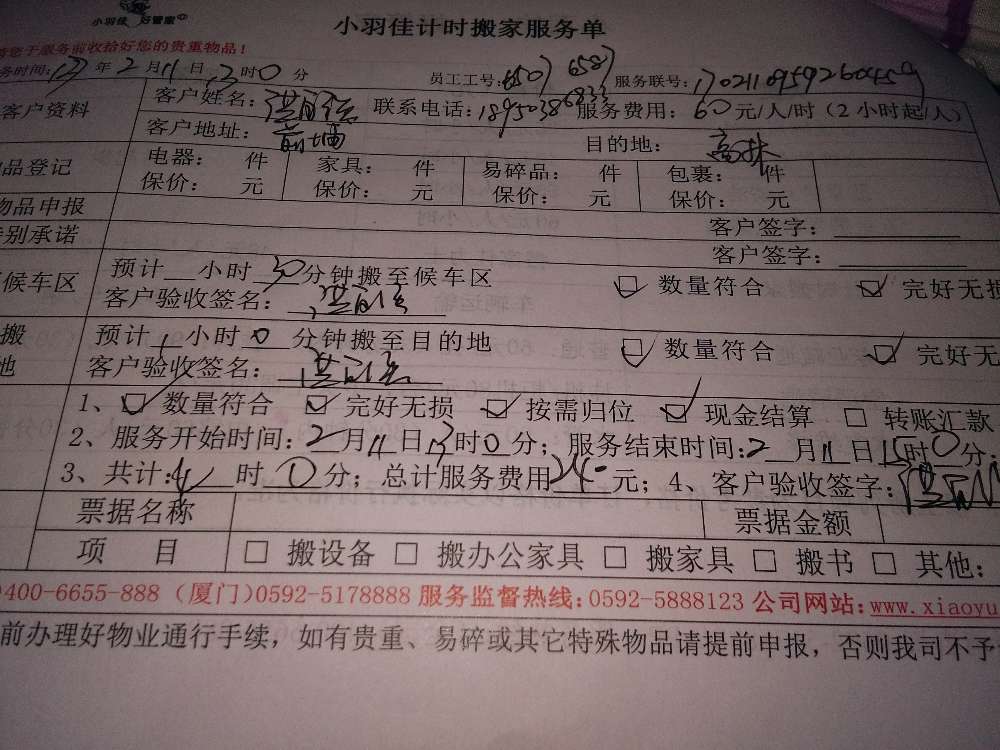 小羽佳 好管家
小羽佳计时搬家服务单
您于服务前收拾好您的贵重物品!
务时间: 年 2 月 11 日 13 时 0 分 员工工号: 6507 6587 服务联号:
客户资料 客户姓名: 联系电话: 18950386833 服务费用: 60 元/人/时(2小时起/人)
客户地址: 前埔 目的地: 高林
品登记 电器: 件 家具: 件 易碎品: 件 包裹: 件
保价: 元 保价: 元 保价: 元 保价: 元
物品申报 客户签字:
特别承诺 客户签字:
候车区 预计 小时 30 分钟搬至候车区 ☑ 数量符合 ☑ 完好无损
客户验收签名:
搬 预计 1 小时 0 分钟搬至目的地 ☑ 数量符合 ☑ 完好无
地 客户验收签名:
1、☑ 数量符合 ☑ 完好无损 ☑ 按需归位 ☑ 现金结算 □ 转账汇款
2、服务开始时间: 2 月 11 日 13 时 0 分; 服务结束时间: 2 月 11 日 15 时 0 分;
3、共计: 4 时 0 分; 总计服务费用 240 元; 4、客户验收签字:
票据名称 票据金额
项 目 □ 搬设备 □ 搬办公家具 □ 搬家具 □ 搬书 □ 其他:
400-6655-888 (厦门)0592-5178888 服务监督热线:0592-5888123 公司网站:www.xiaoyu
前办理好物业通行手续,如有贵重、易碎或其它特殊物品请提前申报,否则我司不予